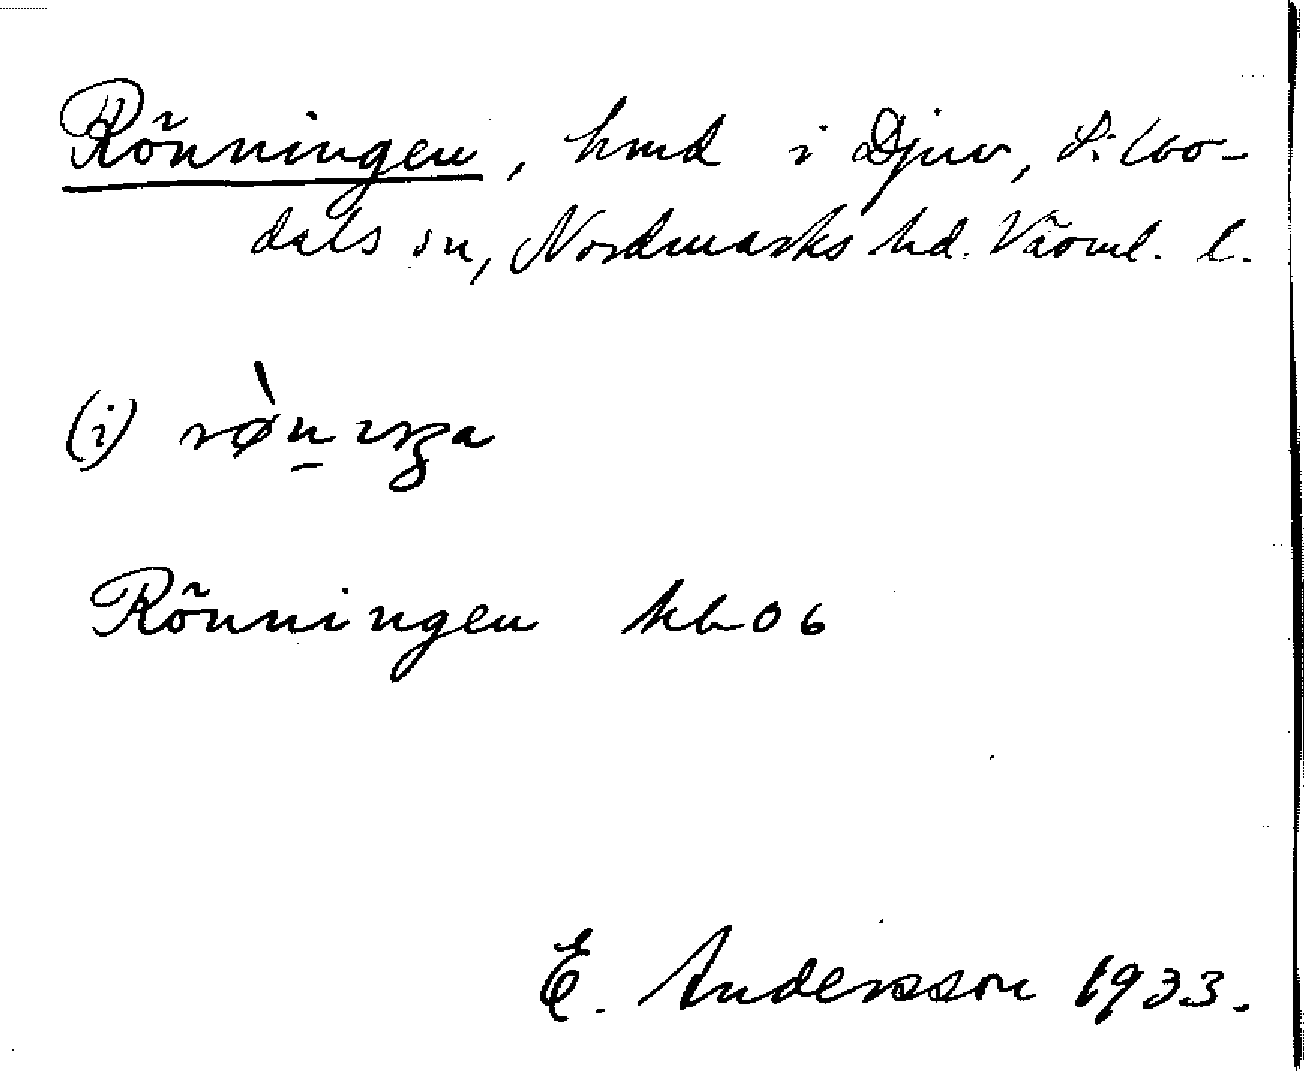 Rönningen, hmd i Djuv, Silbo-
dals sn, Nordmarks hd. Värml. l.
(i)
Rönningen kb 06
E. Andersson 1933.